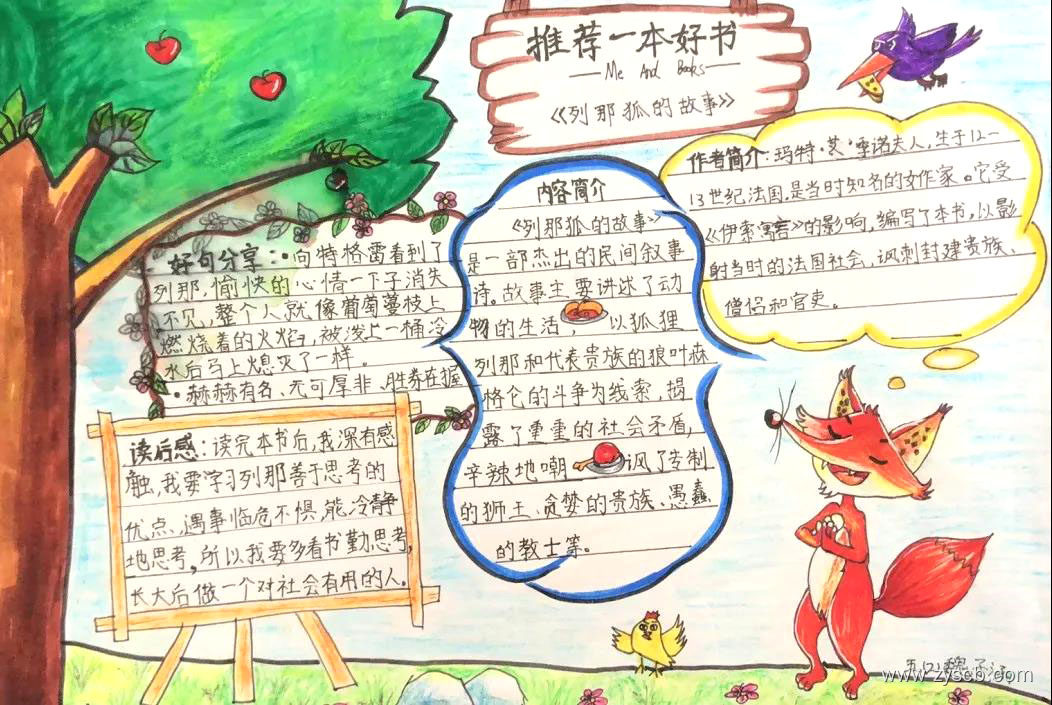 推荐一本好书
——Me And Books——
《列那狐的故事》
作者简介：玛特·艾·季诺夫人，生于12—
13世纪法国，是当时知名的女作家。它受
《伊索寓言》的影响，编写了本书，以影
射当时的法国社会，讽刺封建贵族、
僧侣和官吏。
内容简介
《列那狐的故事》
是一部杰出的民间叙事
诗。故事主要讲述了动
物的生活 以狐狸
列那和代表贵族的狼叶森
格仑的斗争为线索，揭
露了重重的社会矛盾，
辛辣地嘲 讽了专制
的狮王、贪婪的贵族、愚蠢
的教士等。
好句分享：·向特格雷看到了
列那，愉快的心情一下子消失
不见，整个人就像葡萄蔓枝上
燃烧着的火焰，被泼上一桶冷
水后马上熄灭了一样。
·赫赫有名、无可厚非、胜券在握
读后感：读完本书后，我深有感
触，我要学习列那善于思考的
优点、遇事临危不惧，能冷静
地思考，所以我要多看书勤思考，
长大后做一个对社会有用的人。
www.zyscb.com